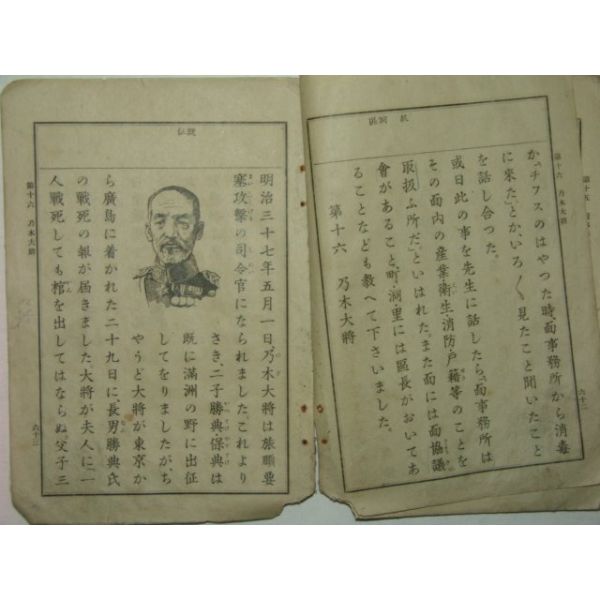 か、「チフスのはやつた時、面事務所から消毒
に来た。」とか、いろ〳〵見たこと聞いたこと
を話し合つた。
或日此の事を先生に話したら、「面事務所は
その面内の産業・衛生・消防・戸籍等のことを
取扱ふ所だ。」といはれた。また面には面協議
會があること、町・洞・里には區長がおいてあ
ることなども教へて下さいました。
第十六 乃木大将
第十六 乃木大将
明治三十七年五月一日、乃木大将は旅順要
塞攻撃の司令官になられました。これより
さき、二子勝典・保典は
既に満洲の野に出征
してをりましたが、ち
やうど大将が東京か
ら廣島に着かれた二十九日に、長男勝典氏
の戦死の報が届きました。大将が夫人に、「一
人戦死しても棺を出してはならぬ。父子三
六十三